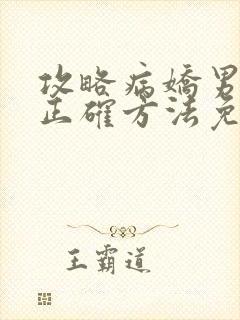 攻略病嬌男
正確方法免
王霸道